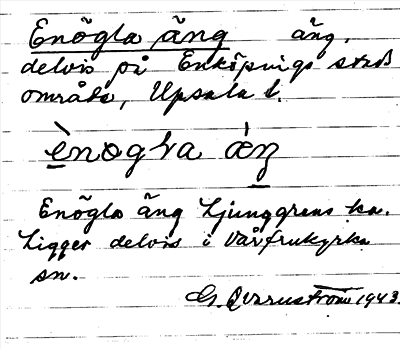 Enögla äng äng,
delvis på Enköpings stads
område, Upsala l.
ènogla ǽŋ
Enögla äng Ljunggrens ka.
Ligger delvis i Vårfrukyrka
sn.
G. Qvarnström 1943.